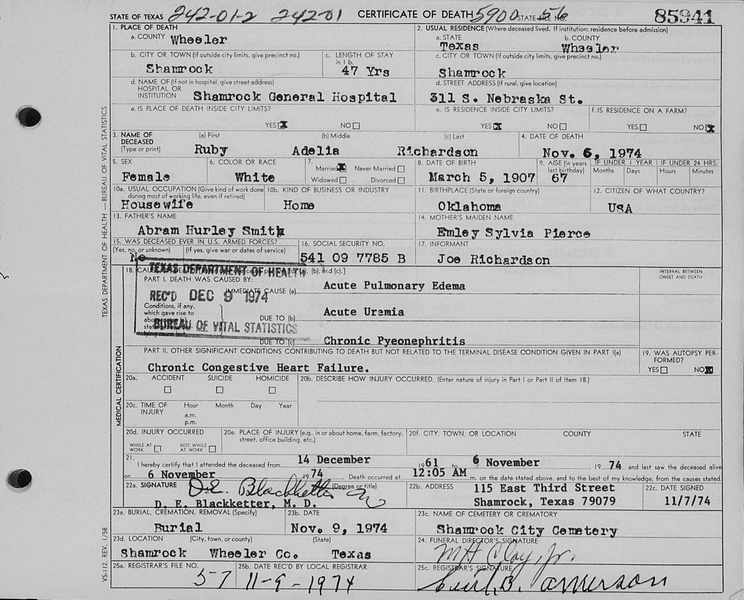 STATE OF TEXAS 242-01-2 242-01 CERTIFICATE OF DEATH 5900 STATE 56 85941
1. PLACE OF DEATH
a. COUNTY Wheeler
2. USUAL RESIDENCE (Where deceased lived. If institution: residence before admission)
a. STATE Texas b. COUNTY Wheeler
b. CITY OR TOWN (If outside city limits, give precinct no.) Shamrock
c. LENGTH OF STAY in 1 b. 47 Yrs
c. CITY OR TOWN (If outside city limits, give precinct no.) Shamrock
d. NAME OF (If not in hospital, give street address) HOSPITAL OR INSTITUTION Shamrock General Hospital
d. STREET ADDRESS (If rural, give location) 311 S. Nebraska St.
e. IS PLACE OF DEATH INSIDE CITY LIMITS? YES X NO
e. IS RESIDENCE INSIDE CITY LIMITS? YES X NO
f. IS RESIDENCE ON A FARM? YES NO X
3. NAME OF DECEASED (Type or print) (a) First Ruby (b) Middle Adelia (c) Last Richardson
4. DATE OF DEATH Nov. 6, 1974
5. SEX Female
6. COLOR OR RACE White
7. Married X Never Married Widowed Divorced
8. DATE OF BIRTH March 5, 1907
9. AGE (In years last birthday) 67
IF UNDER 1 YEAR Months Days
IF UNDER 24 HRS. Hours Minutes
10a. USUAL OCCUPATION (Give kind of work done during most of working life, even if retired) Housewife
10b. KIND OF BUSINESS OR INDUSTRY Home
11. BIRTHPLACE (State or foreign country) Oklahoma
12. CITIZEN OF WHAT COUNTRY? USA
13. FATHER'S NAME Abram Hurley Smith
14. MOTHER'S MAIDEN NAME Emley Sylvia Pierce
15. WAS DECEASED EVER IN U.S. ARMED FORCES? (Yes, no, or unknown) (If yes, give war or dates of service) No
16. SOCIAL SECURITY NO. 541 09 7785 B
17. INFORMANT Joe Richardson
18. (b). and (c).
INTERVAL BETWEEN ONSET AND DEATH
PART I. DEATH WAS CAUSED BY:
IMMEDIATE CAUSE (a) Acute Pulmonary Edema
Conditions, if any, which gave rise to
DUE TO (b) Acute Uremia
DUE TO (c) Chronic Pyeonephritis
TEXAS DEPARTMENT OF HEALTH
REC'D DEC 9 1974
BUREAU OF VITAL STATISTICS
PART II. OTHER SIGNIFICANT CONDITIONS CONTRIBUTING TO DEATH BUT NOT RELATED TO THE TERMINAL DISEASE CONDITION GIVEN IN PART I(a)
Chronic Congestive Heart Failure.
19. WAS AUTOPSY PERFORMED? YES NO X
20a. ACCIDENT SUICIDE HOMICIDE
20b. DESCRIBE HOW INJURY OCCURRED. (Enter nature of injury in Part I or Part II of Item 18.)
20c. TIME OF INJURY Hour a.m. p.m. Month Day Year
20d. INJURY OCCURRED WHILE AT WORK NOT WHILE AT WORK
20e. PLACE OF INJURY (e.g., in or about home, farm, factory, street, office building, etc.)
20f. CITY, TOWN, OR LOCATION COUNTY STATE
21. I hereby certify that I attended the deceased from 14 December 1961 to 6 November 1974 and last saw the deceased alive
on 6 November 1974 Death occurred at 12:05 AM m. on the date stated above, and to the best of my knowledge, from the causes stated.
22a. SIGNATURE D.E. Blackketter (Degree or title)
D. E. Blackketter, M. D.
22b. ADDRESS 115 East Third Street
Shamrock, Texas 79079
22c. DATE SIGNED 11/7/74
23a. BURIAL, CREMATION, REMOVAL (Specify) Burial
23b. DATE Nov. 9, 1974
23c. NAME OF CEMETERY OR CREMATORY Shamrock City Cemetery
23d. LOCATION (City, town, or county) (State) Shamrock Wheeler Co. Texas
24. FUNERAL DIRECTOR'S SIGNATURE Clay, Jr.
25a. REGISTRAR'S FILE NO. 57
25b. DATE REC'D BY LOCAL REGISTRAR 11-9-1974
25c. REGISTRAR'S SIGNATURE
VS-112, REV. 1/58
MEDICAL CERTIFICATION
TEXAS DEPARTMENT OF HEALTH — BUREAU OF VITAL STATISTICS